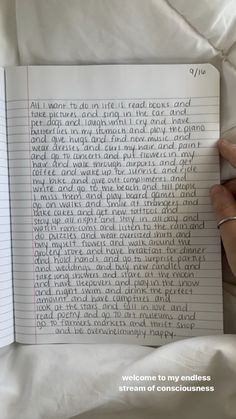 9/16
All I want to do in life is read books and
take pictures and sing in the car and
pet dogs and laugh until I cry and have
butterflies in my stomach and play the piano
and give hugs and find new music and
wear dresses and curl my hair and paint
and go to concerts and put flowers in my
hair and walk through airports and get
coffee and wake up for sunrise and ride
my bike and give out compliments and
write and go to the beach and tell people
I miss them and play board games and
go on walks and smile at strangers and
bake cakes and get new tattoos and
stay up all night and stay in all day and
watch rom-coms and listen to the rain and
do puzzles and wear oversized shirts and
buy myself flowers and walk around the
grocery store and have breakfast for dinner
and hold hands and go to surprise parties
and weddings, and buy new candles and
take long showers and stare at the moon
and have sleepovers and play in the snow
and night swim and drink the perfect
amount and have campfires and
look at the stars and fall in love and
read poetry and go to art museums and
go to farmers markets and thrift shop
and be overwhelmingly happy.
welcome to my endless
stream of consciousness